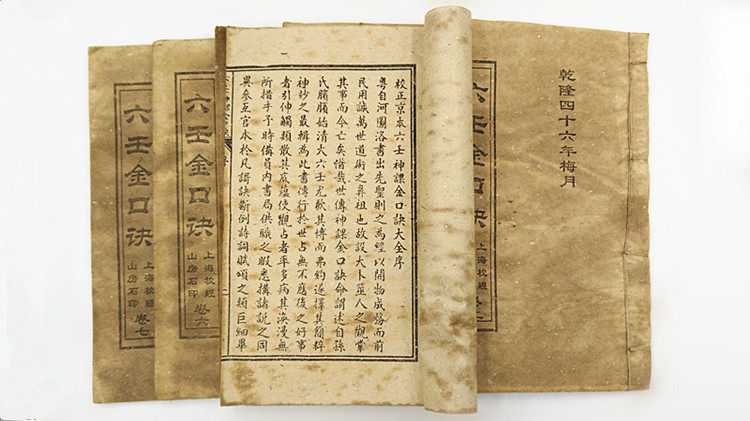 乾隆四十六年梅月
六壬金口诀
上海校經
校正京本六壬神課金口訣大全序
粵自河圖洛書出先聖則之為經以開物成務而前
民用誠萬世道術之鼻祖也故設大卜筮人之觀業
其事而今亡矣惜哉世傳神課金口訣命謂述自孫
氏臏臏始清大六壬尤歎其博而弗約遂擇其簡粹
神鈔之最輯為此書傳行於世占無不應後之好事
者引伸觸類散其底蘊使觀占者卒多病其渙漫無
所措手予時備員內書局供職之暇悉搆諸說之同
異參互官本於凡謌訣斷例詩詞賦頌之類巨細畢
六壬金口诀
上海校經
山房石印
卷六
六壬金口诀
上海校經
山房石印
卷七